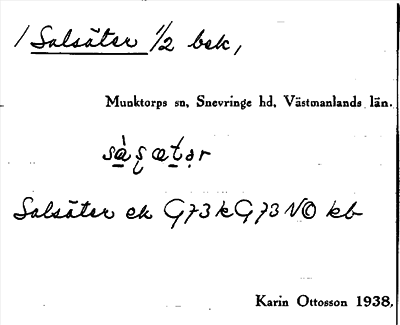 / Salsäter 1/2 bek,
Munktorps sn, Snevringe hd, Västmanlands län.
Salsäter ek G73kG73NO kb
Karin Ottosson 1938.